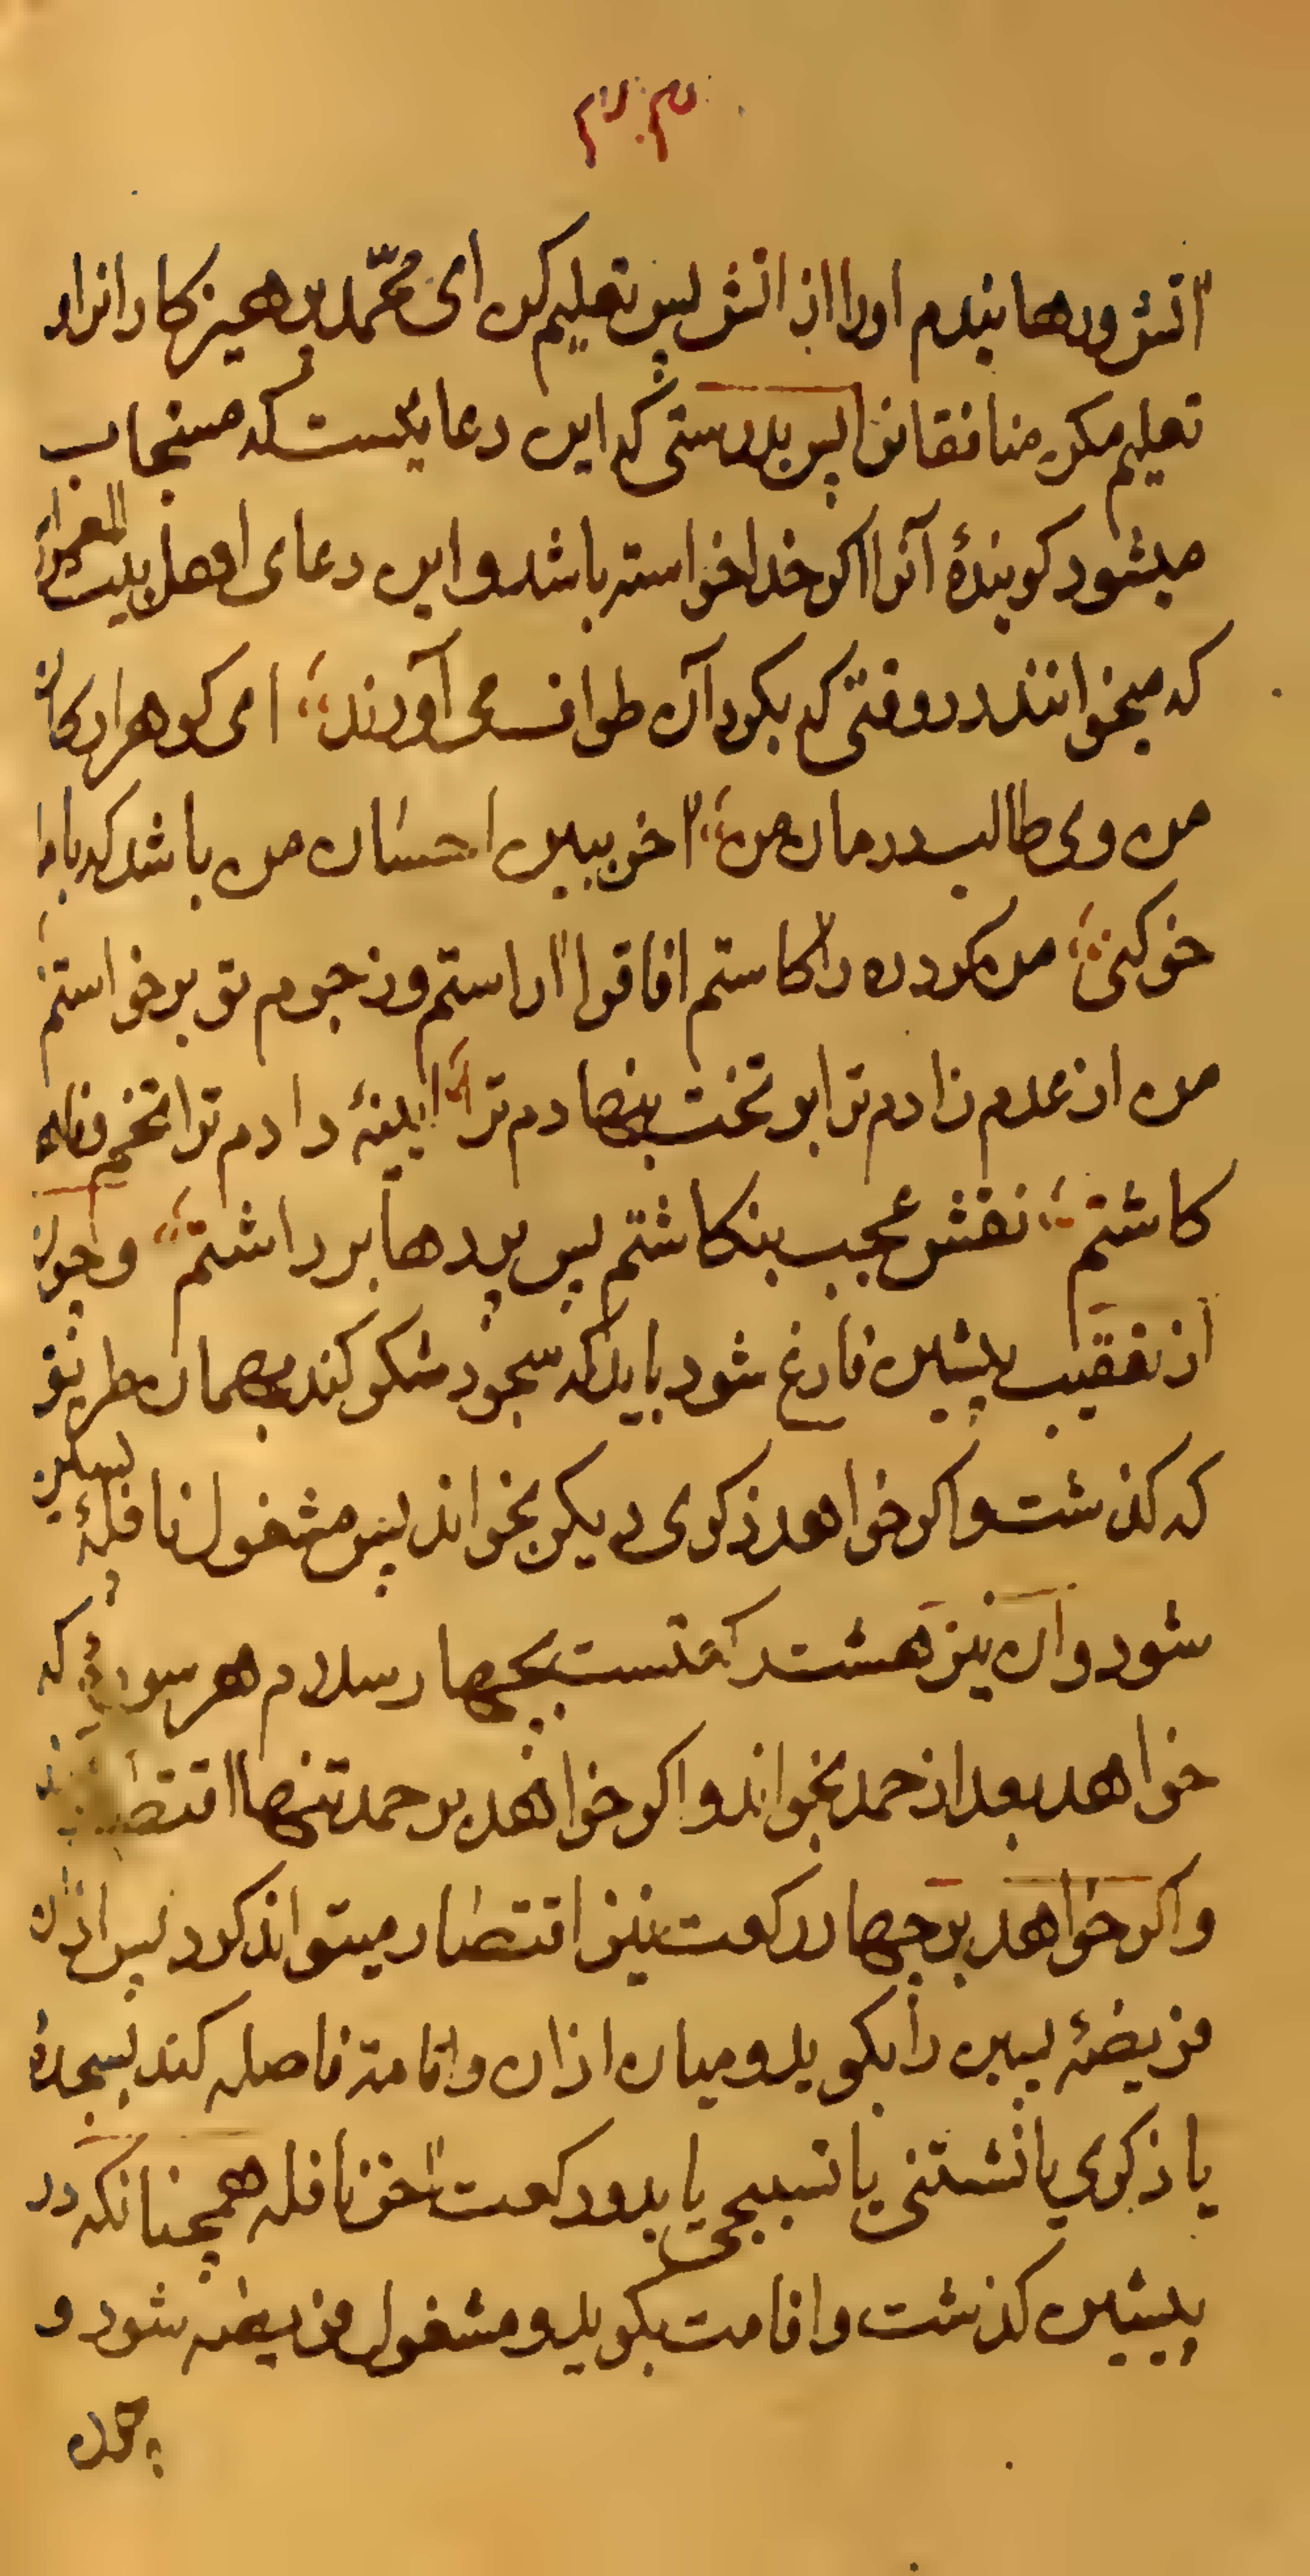 آتش ورهانیدم اورا از آتش پس تعلیم کن ای محمّد پرهیزکارانرا و
تعلیم مکن منافقانرا پس بدرستی که این دعائیست که مستجاب
میشود کویندهٔ آنرا اکر خدا خواسته باشد و این دعای اهل بیت المعمور
که میخوانند در وقتی که بکرد آن طواف می آورند ای کوهر ارکان
من وی طالب درمان من آخر ببین احسان من باشد که با ما
خو کنی من کرده را کاستم آفاق را آراستم وز جرم تو برخواستم
من از عدم زادم ترا بر تخت بنهادم ترا آیینهٔ دادم ترا تخم وفا
کاشتم نقش عجب بنکاشتم پس پردها برداشتم و چون
از تعقیب پیشین فارغ شود باید که سجود شکر کند بهمان طریق
که کذشت و اکر خواهد ذکری دیکر بخواند پس مشغول نافلهٔ پسین
شود و آن نیز هشت رکعتست بچهار سلام هر سورهٔ که
خواهد بعد از حمد بخواند و اکر خواهد بر حمد تنها اقتصار
و اکر خواهد بر چهار رکعت نیز اقتصار میتواند کرد پس اذان
فریضهٔ پسین را بکوید و میان اذان و اقامه فاصله کند بسجدهٔ
یا ذکری یا نشستنی یا تسبیحی یا بدو رکعت آخر نافله همچنانکه در
پیشین کذشت و اقامت بکوید و مشغول فریضه شود و
چون